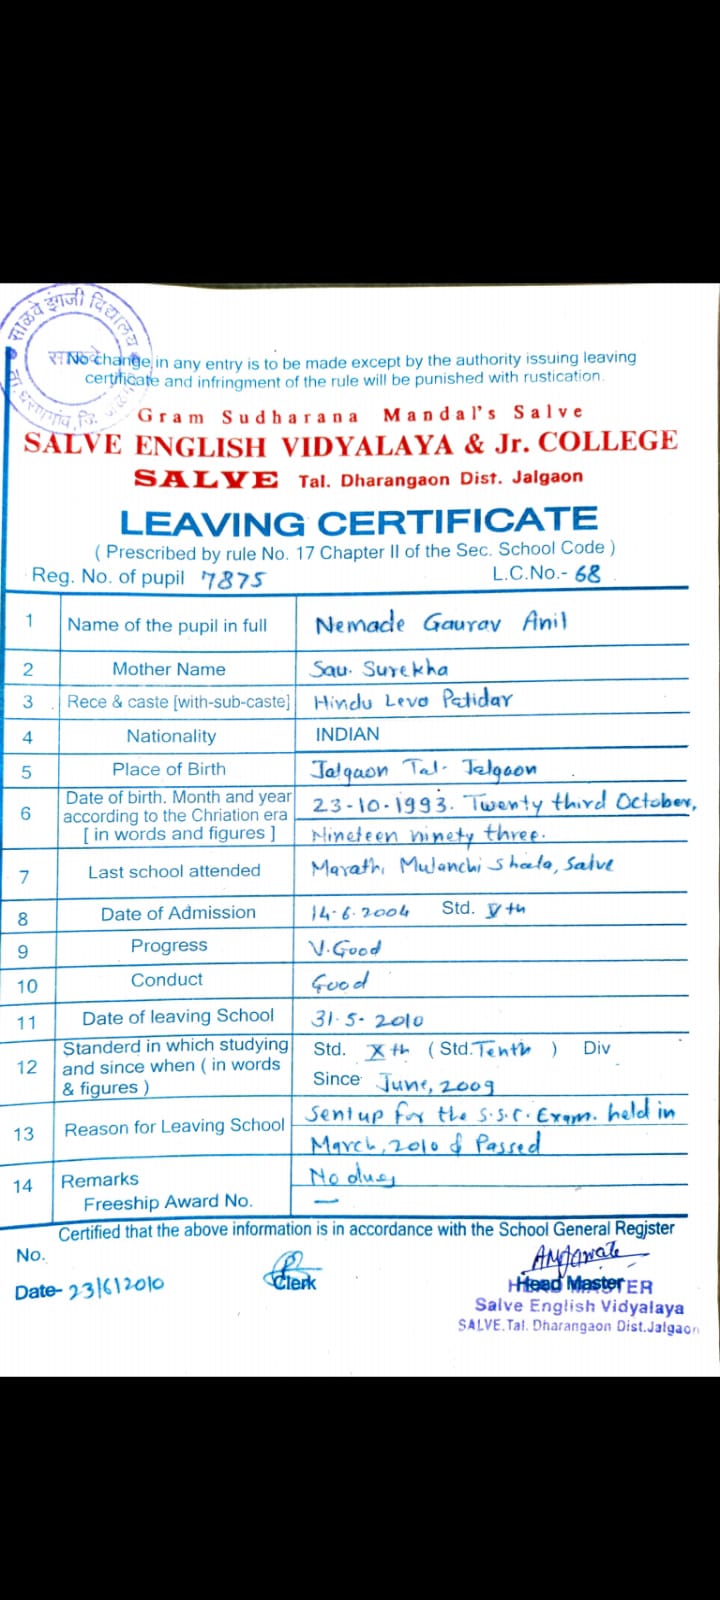 साळवे इंग्रजी विद्यालय
साळवे
ता. धरणगांव, जि. जळगांव
No change in any entry is to be made except by the authority issuing leaving
certificate and infringment of the rule will be punished with rustication.
Gram Sudharana Mandal's Salve
SALVE ENGLISH VIDYALAYA & Jr. COLLEGE
SALVE Tal. Dharangaon Dist. Jalgaon
LEAVING CERTIFICATE
( Prescribed by rule No. 17 Chapter II of the Sec. School Code )
Reg. No. of pupil 7875 L.C.No.- 68
1 Name of the pupil in full Nemade Gaurav Anil
2 Mother Name Sau. Surekha
3 Rece & caste [with-sub-caste] Hindu Leva Patidar
4 Nationality INDIAN
5 Place of Birth Jalgaon Tal- Jalgaon
6 Date of birth. Month and year according to the Chriation era [ in words and figures ] 23-10-1993. Twenty third October,
Nineteen ninety three.
7 Last school attended Marathi Mulanchi Shala, Salve
8 Date of Admission 14-6-2004 Std. Vth
9 Progress V.Good
10 Conduct Good
11 Date of leaving School 31-5-2010
12 Standerd in which studying and since when ( in words & figures ) Std. Xth ( Std. Tenth ) Div
Since June, 2009
13 Reason for Leaving School Sent up for the S.S.C. Exam. held in
March, 2010 & Passed
14 Remarks No dues
Freeship Award No. —
Certified that the above information is in accordance with the School General Regjster
No.
Date- 23/6/2010 Clerk Head Master
HEAD MASTER
Salve English Vidyalaya
SALVE.Tal. Dharangaon Dist.Jalgaon